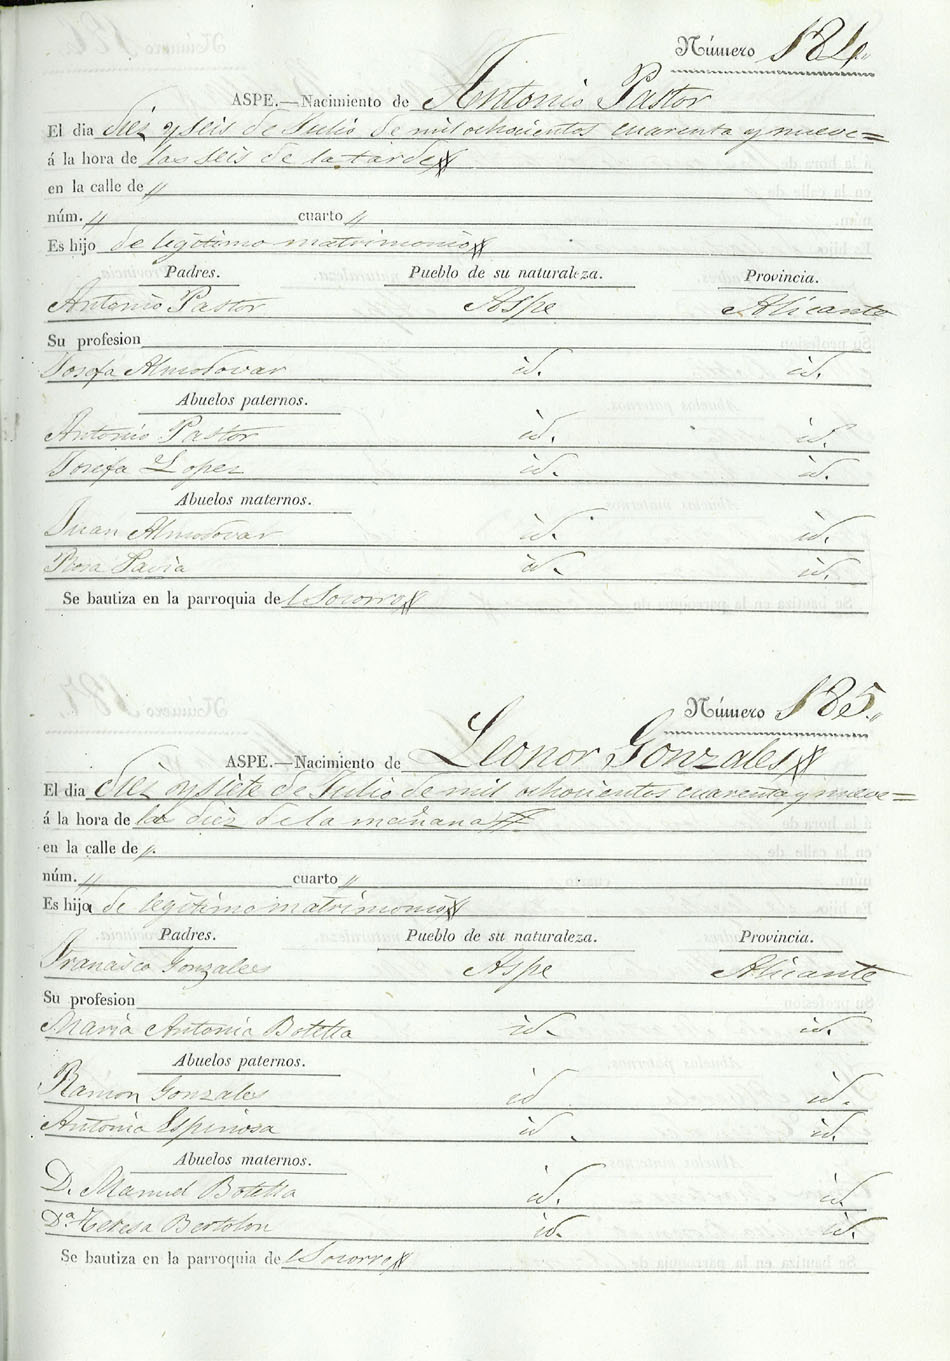 Número 184.
ASPE.—Nacimiento de Antonio Pastor
El dia diez y seis de Julio de mil ochocientos cuarenta y nueve=
á la hora de las seis de la tarde
en la calle de "
núm. " cuarto "
Es hijo de legitimo matrimonio
Padres. Pueblo de su naturaleza. Provincia.
Antonio Pastor Aspe Alicante
Su profesion
Josefa Almodovar id. id.
Abuelos paternos.
Antonio Pastor id. id.
Josefa Lopez id. id.
Abuelos maternos.
Juan Almodovar id. id.
Rosa Pavia id. id.
Se bautiza en la parroquia del Socorro
Número 185.
ASPE.—Nacimiento de Leonor Gonzales
El dia diez y siete de Julio de mil ochocientos cuarenta y nueve=
á la hora de las diez de la mañana
en la calle de "
núm. " cuarto "
Es hija de legitimo matrimonio
Padres. Pueblo de su naturaleza. Provincia.
Francisco Gonzales Aspe Alicante
Su profesion
Maria Antonia Botella id. id.
Abuelos paternos.
Ramon Gonzales id id.
Antonia Espinosa id. id.
Abuelos maternos.
D. Manuel Botella id. id.
Dª Teresa Bertolon id. id.
Se bautiza en la parroquia del Socorro